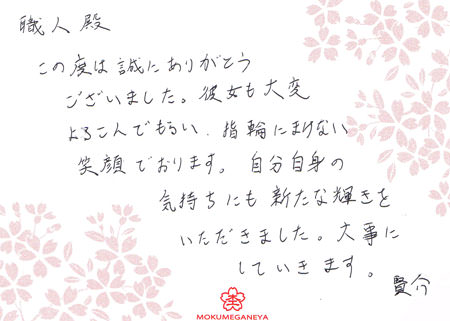 職人殿
この度は誠にありがとう
ございました。彼女も大変
よろこんでもらい、指輪にまけない
笑顔でおります。自分自身の
気持ちにも新たな輝きを
いただきました。大事に
していきます。
賢介
MOKUMEGANEYA